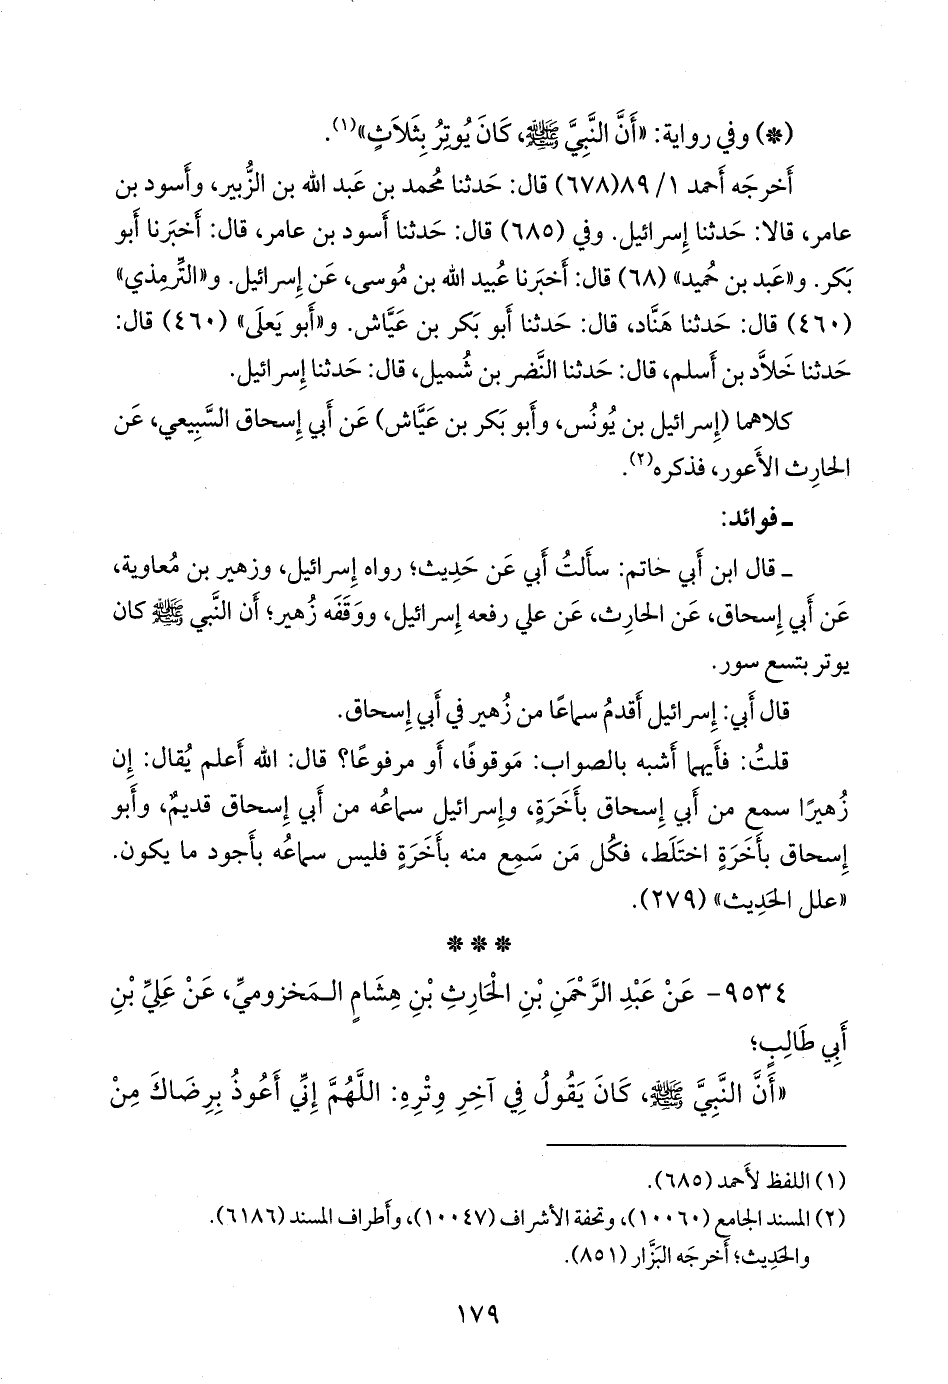 (*) وفي رواية: «أَنَّ النَّبِيَّ ﷺ، كَانَ يُوتِرُ بِثَلَاثٍ»(١).
أَخرجَه أَحمد ١/ ٨٩(٦٧٨) قال: حَدثنا مُحمد بن عَبد الله بن الزُّبير، وأَسود بن
عامر، قالا: حَدثنا إِسرائيل. وفي (٦٨٥) قال: حَدثنا أَسود بن عامر، قال: أَخبَرنا أَبو
بَكر. و«عَبد بن حُميد» (٦٨) قال: أَخبَرنا عُبيد الله بن مُوسى، عَن إِسرائيل. و«التِّرمِذي»
(٤٦٠) قال: حَدثنا هَنَّاد، قال: حَدثنا أَبو بَكر بن عَيَّاش. و«أَبو يَعلَى» (٤٦٠) قال:
حَدثنا خَلاَّد بن أَسلم، قال: حَدثنا النَّضر بن شُميل، قال: حَدثنا إِسرائيل.
كلاهما (إِسرائيل بن يُونُس، وأَبو بَكر بن عَيَّاش) عَن أَبي إِسحاق السَّبِيعي، عَن
الحارِث الأَعور، فذكره(٢).
ـ فوائد:
ـ قال ابن أَبي حاتم: سأَلتُ أَبي عَن حَدِيث؛ رواه إِسرائيل، وزهير بن مُعاوية،
عَن أَبي إِسحاق، عَن الحارِث، عَن علي رفعه إِسرائيل، ووَقَفَه زُهير؛ أَن النَّبي ﷺ كان
يوتر بتسع سور.
قال أَبي: إِسرائيل أَقدمُ سماعًا من زُهير في أَبي إِسحاق.
قلتُ: فأَيهما أَشبه بالصواب: مَوقوفًا، أَو مرفوعًا؟ قال: الله أَعلم يُقال: إِن
زُهيرًا سمع من أَبي إِسحاق بأَخَرَةٍ، وإِسرائيل سماعُه من أَبي إِسحاق قديمٌ، وأَبو
إِسحاق بأَخَرَةٍ اختَلَط، فكُل مَن سَمِع منه بأَخَرَةٍ فليس سماعُه بأَجود ما يكون.
«علل الحَدِيث» (٢٧٩).
* * *
٩٥٣٤- عَنْ عَبْدِ الرَّحْمَنِ بْنِ الْحَارِثِ بْنِ هِشَامٍ الـمَخزوميِّ، عَنْ عَلِيِّ بْنِ
أَبِي طَالِبٍ؛
«أَنَّ النَّبِيَّ ﷺ، كَانَ يَقُولُ فِي آخِرِ وِتْرِهِ: اللَّهُمَّ إِنِّي أَعُوذُ بِرِضَاكَ مِنْ
(١) اللفظ لأَحمد (٦٨٥).
(٢) المسند الجامع (١٠٠٦٠)، وتحفة الأشراف (١٠٠٤٧)، وأطراف المسند (٦١٨٦).
والحَدِيث؛ أَخرجَه البَزَّار (٨٥١).
١٧٩